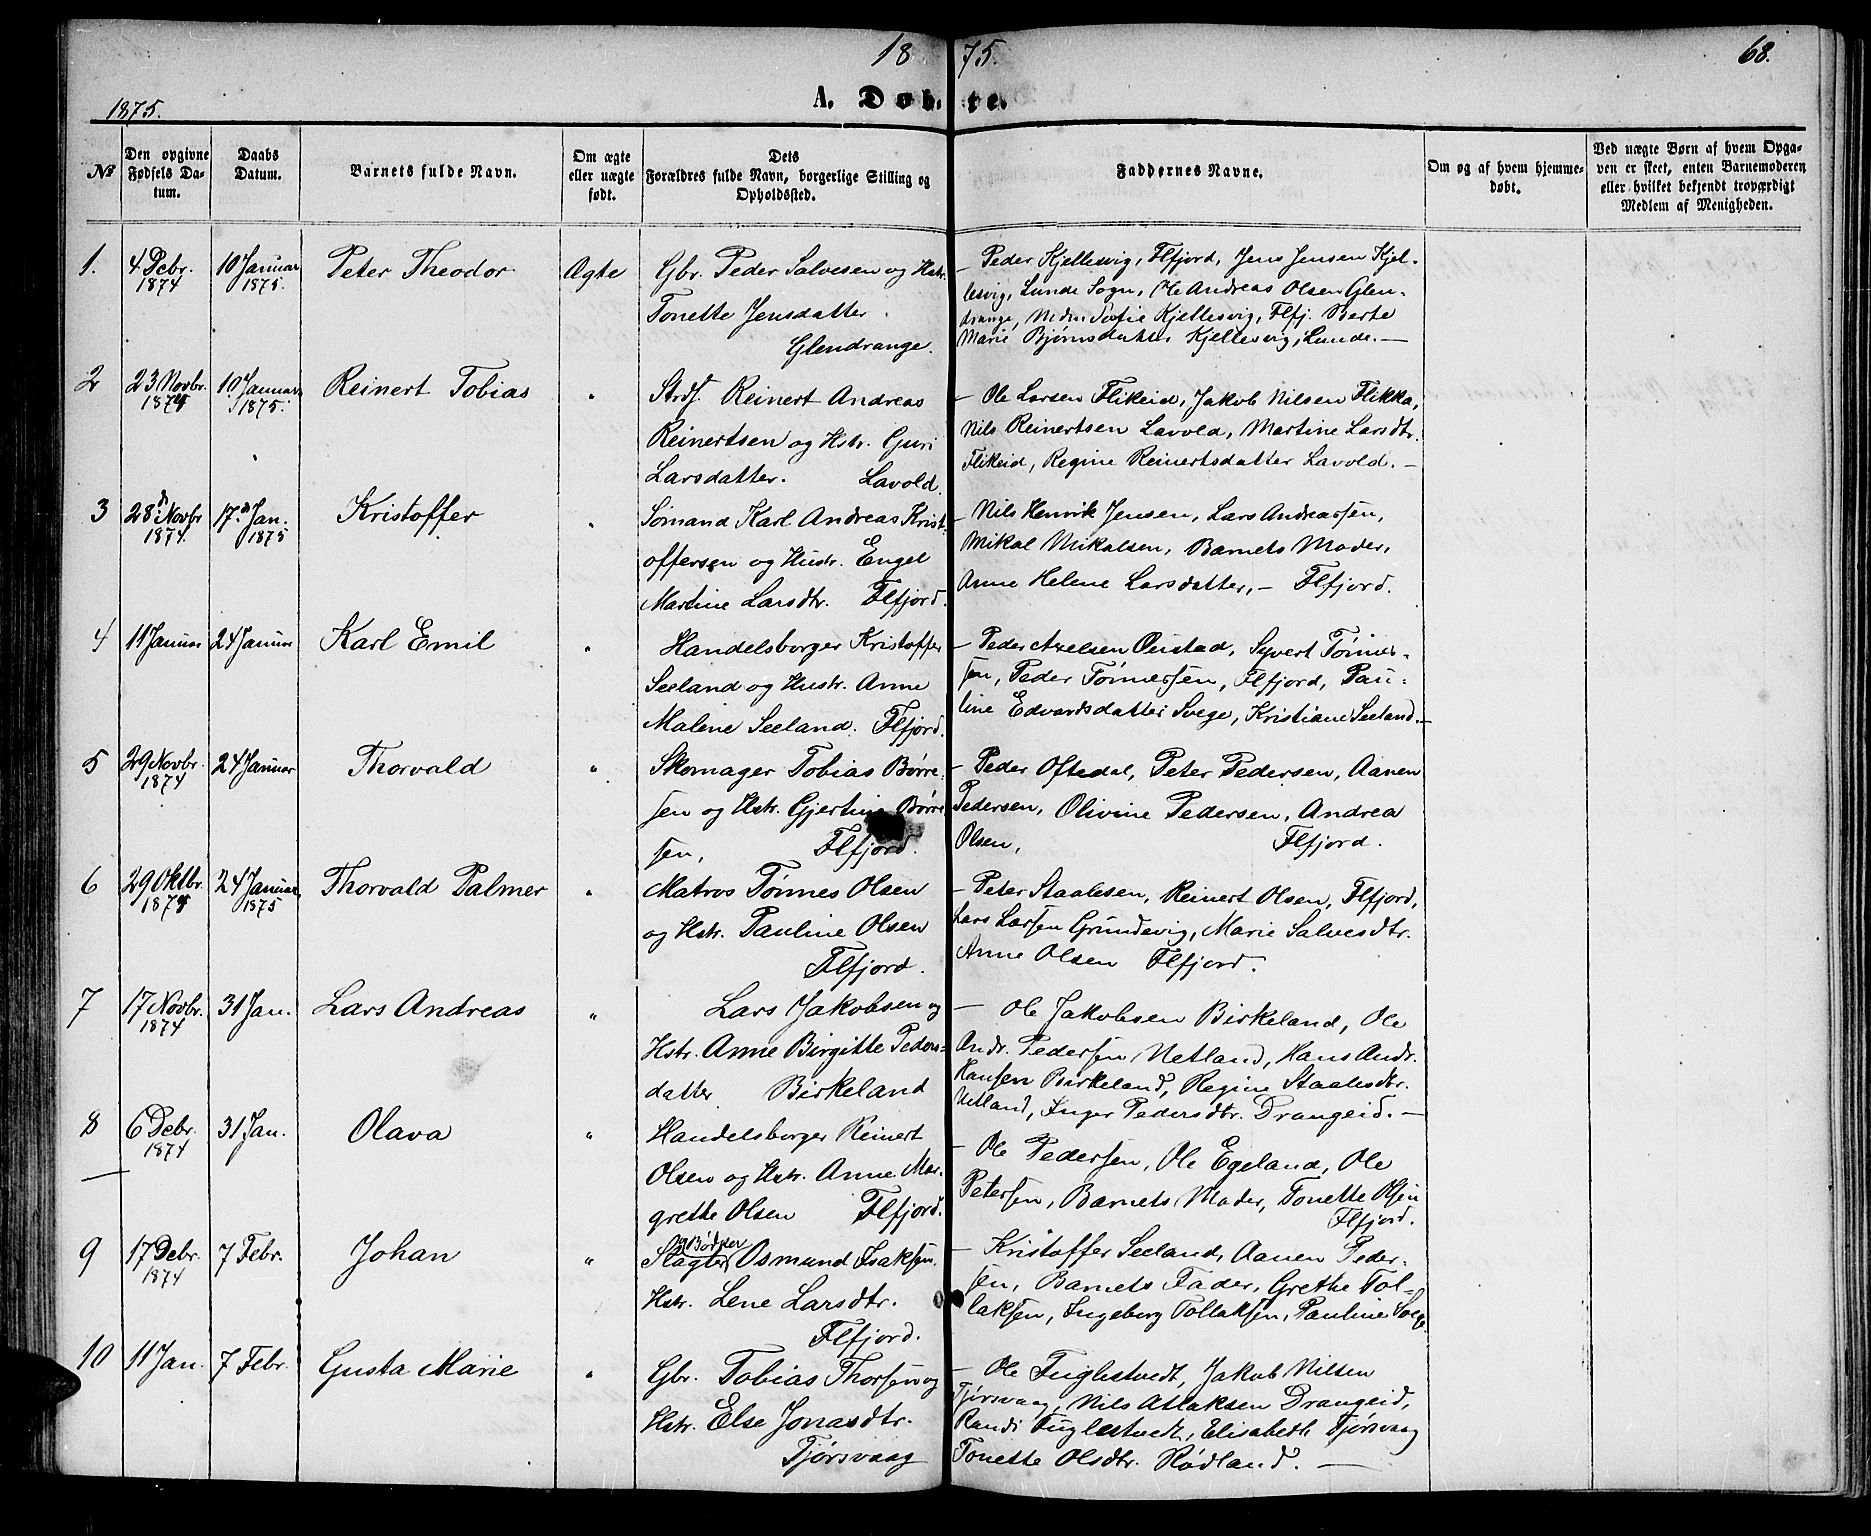 1875. 68.
1875.
A. Døbte.
№
Den opgivne Fødsels Datum.
Daabs Datum.
Barnets fulde Navn.
Om ægte eller uægte født.
Dets Forældres fulde Navn, borgerlige Stilling og Opholdssted.
Faddernes Navne.
Om og af hvem hjemmedøbt.
Ved uægte Børn af hvem Opgaven er skeet, enten Barnemoderen eller hvilket bekjendt troværdigt Medlem af Menigheden.
1. 4 Debr. 1874 10 Januar 1875. Peter Theodor Ægte
Gbr. Peder Salvesen og Hstr.
Tonette Jensdatter
Glendrange.
– Peder Kjellesvig, Flfjord, Jens Jensen Kjel-
lesvig, Lunde Sogn, Ole Andreas Olsen Glen-
drange, Sofie Kjellesvig, Flfj. Berte
Marie Bjørnsdatter Kjellesvig, Lunde. –
2 23 Novbr. 1874 10 Januar 1875. Reinert Tobias "
Strds. Reinert Andreas
Reinertsen og Hstr. Guri
Larsdatter. Lavold.
– Ole Larsen Flikeid, Jakob Nilsen Flikka,
Nils Reinertsen Lavold, Martine Larsdtr.
Flikeid, Regine Reinertsdatter Lavold. –
3 28d Novbr 1874. 17d Jan. 1875 Kristoffer "
Sømand Karl Andreas Krist-
offersen og Hustr. Engel
Martine Larsdtr. Flfjord.
– Nils Henrik Jensen, Lars Andreassen,
Mikal Mikalsen, Barnets Moder,
Anne Helene Larsdatter, – Flfjord.
4 11 Januar 24 Januar Karl Emil "
Handelsborger Kristoffer
Seeland og Hustr. Anne
Malene Seeland. Flfjord.
– Peder Axelsen Øustad, Syvert Tønnes-
sen, Peder Tønnessen, Flfjord, Pau-
line Edvardsdatter Svege, Kristiane Seeland. –
5 29 Novbr. 1874 24 Januar Thorvald "
Skomager Tobias Børre-
sen og Hstr. Gjertine Børre
sen, Flfjord.
– Peder Oftedal, Peter Pedersen, Aanen
Pedersen, Olivine Pedersen, Andrea
Olsen, Flfjord.
6 29 Oktbr. 1874 24 Januar 1875 Thorvald Palmer "
Matros Tønnes Olsen
og Hstr. Pauline Olsen
Flfjord.
– Peter Staalesen, Reinert Olsen, Flfjord,
Lars Larsen Grundevig, Marie Salvesdtr.
Anne Olsen Flfjord.
7 17 Novbr. 1874 31 Jan. Lars Andreas "
Lars Jakobsen og
Hstr. Anne Birgitte Peders-
datter Birkeland
– Ole Jakobsen Birkeland, Ole
Andr. Pedersen Netland, Hans Andr.
Hansen Birkeland, Regine Staalesdtr.
Netland, Inger Pedersdtr. Drangeid. –
8 6 Debr. 1874 31 Jan. Olava "
Handelsborger Reinert
Olsen og Hstr. Anne Mar-
grethe Olsen Flfjord.
– Ole Pedersen, Ole Egeland, Ole
Petersen, Barnets Moder, Tonette Olsen
Flfjord.
9 17 Debr. 1874 7 Febr. Johan "
og Bødker
Slagter Osmund Isaksen.
Hstr. Lene Larsdtr.
Flfjord.
– Kristoffer Seeland, Aanen Peder-
sen, Barnets Fader, Grethe Tol-
laksen, Ingeborg Tollaksen, Pauline Svege
10 11 Jan. 7 Febr. Gusta Marie "
Gbr. Tobias Thorsen og
Hstr. Else Jonasdtr.
Tjørsvaag
– Ole Fuglestvedt, Jakob Nilsen
Tjørsvaag, Nils Atlaksen Drangeid,
Randi Fuglestvedt, Elisabeth Tjørsvaag
Tonette Olsdtr. Rødland. –